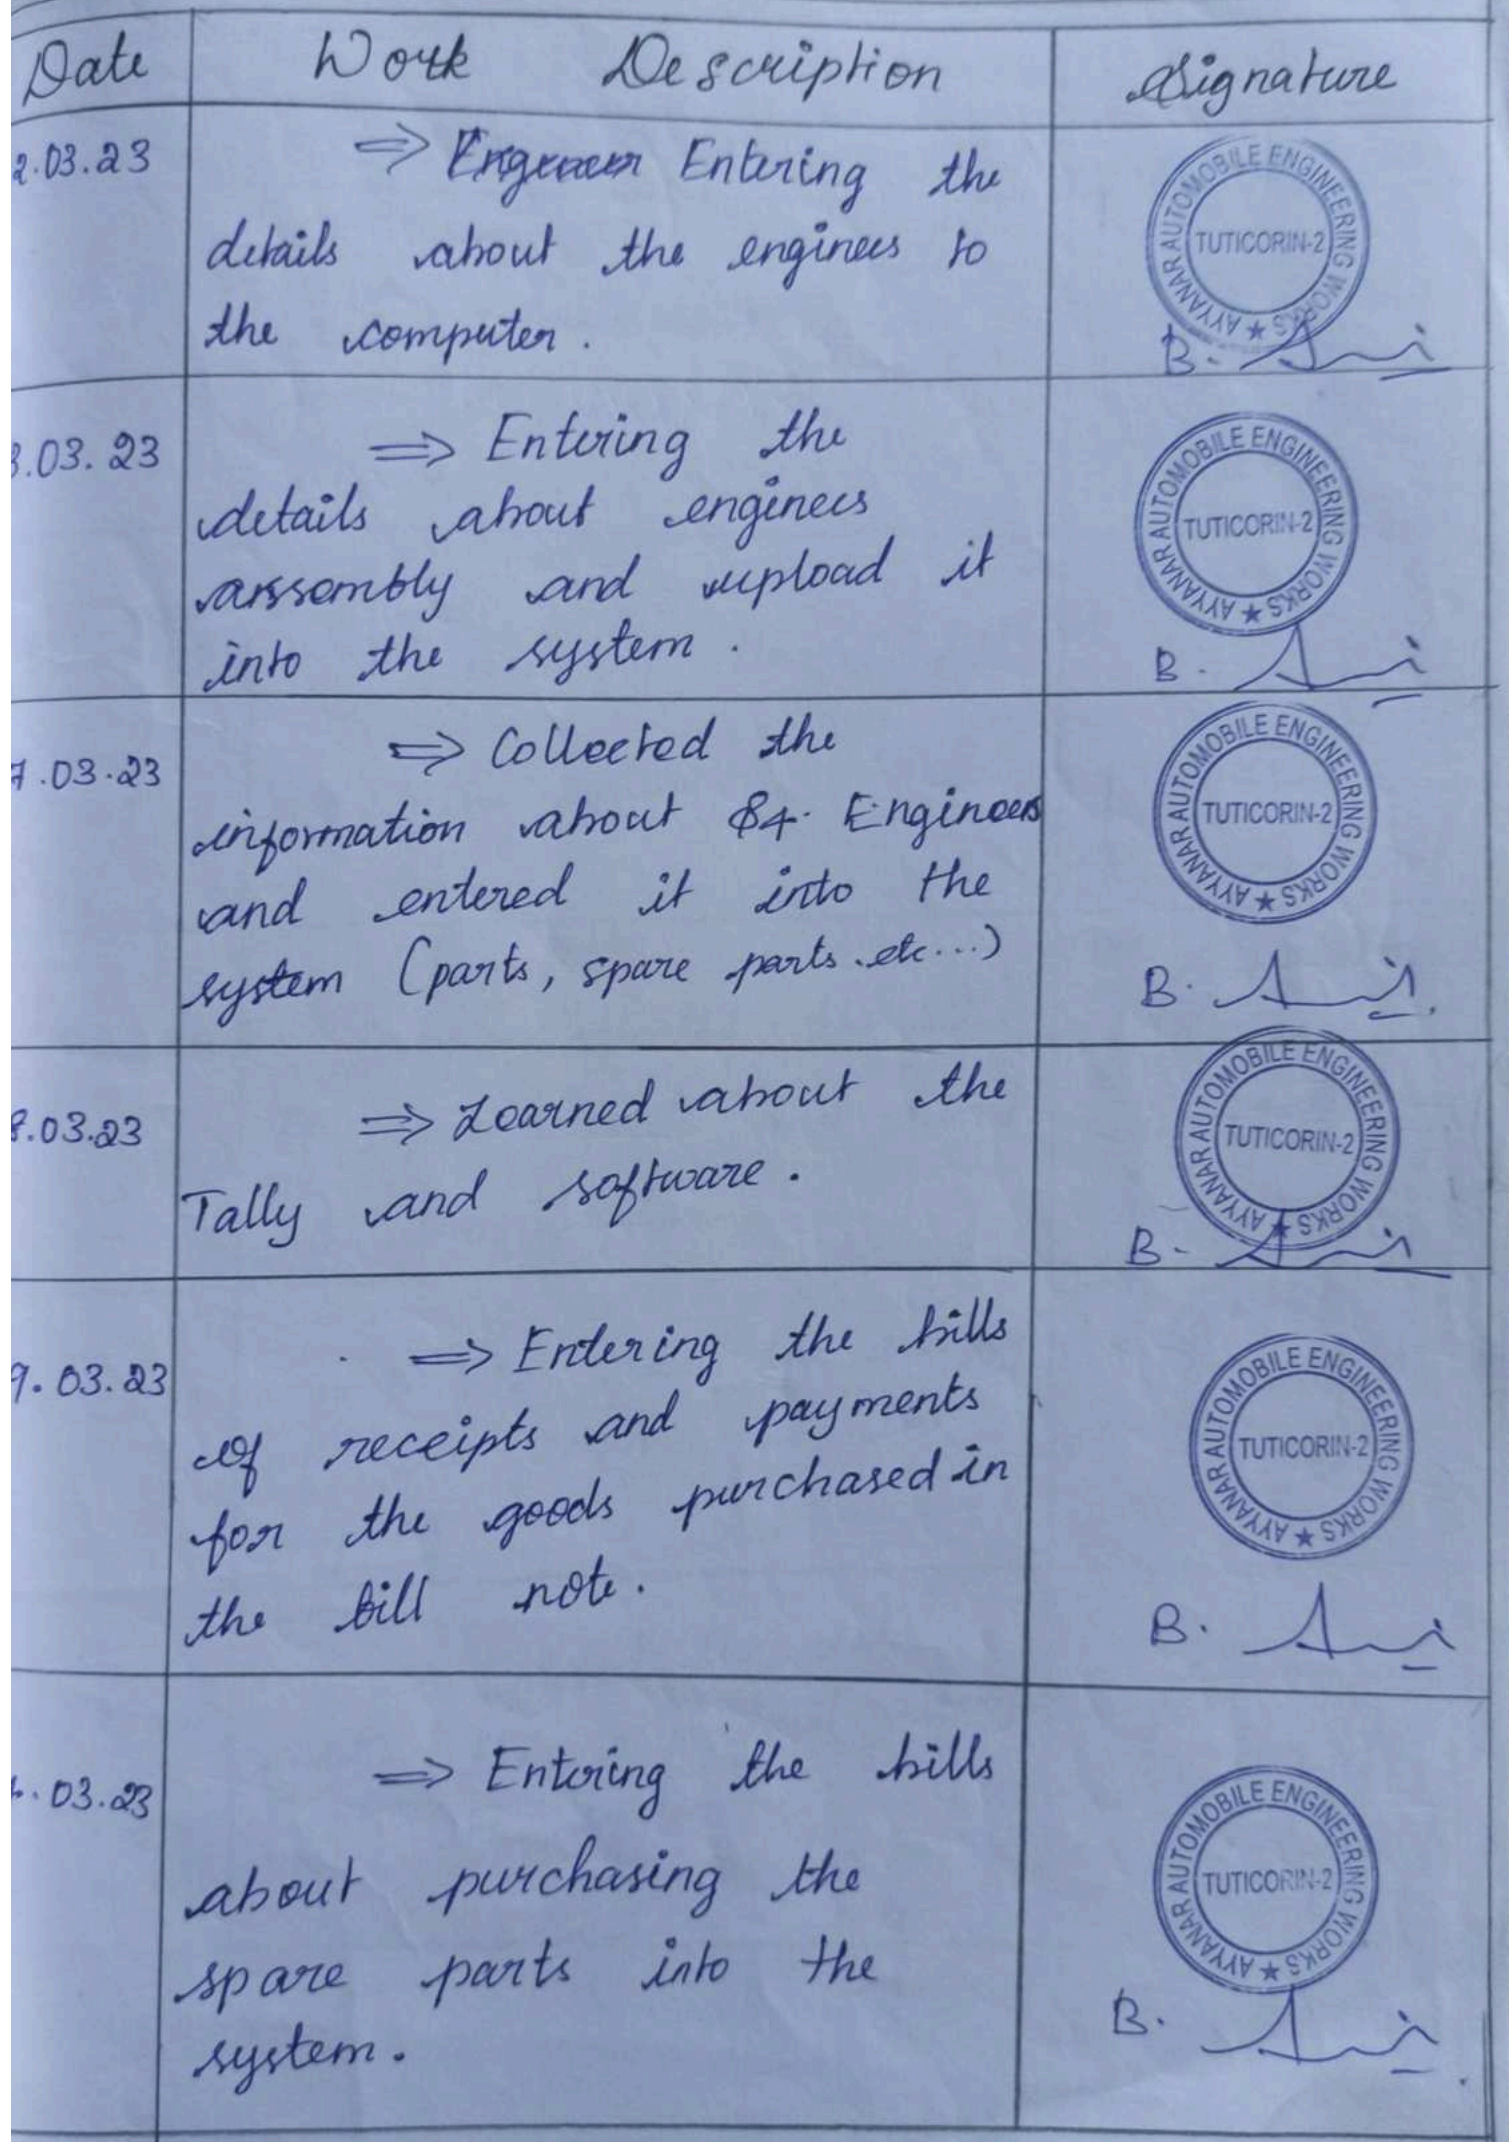 Date Work Description Signature
2.03.23 ⇒ Entering the
details about the enginees to
the computer.
AYYANAR AUTOMOBILE ENGINEERING WORKS ★
TUTICORIN-2
B.
3.03.23 ⇒ Entering the
details about enginees
assembly and upload it
into the system.
AYYANAR AUTOMOBILE ENGINEERING WORKS ★
TUTICORIN-2
B.
7.03.23 ⇒ Collected the
information about Enginees
and entered it into the
system (parts, spare parts etc...)
AYYANAR AUTOMOBILE ENGINEERING WORKS ★
TUTICORIN-2
B.
8.03.23 ⇒ Learned about the
Tally and software.
AYYANAR AUTOMOBILE ENGINEERING WORKS ★
TUTICORIN-2
B.
9.03.23 ⇒ Entering the bills
of receipts and payments
for the goods purchased in
the bill note.
AYYANAR AUTOMOBILE ENGINEERING WORKS ★
TUTICORIN-2
B.
.03.23 ⇒ Entering the bills
about purchasing the
spare parts into the
system.
AYYANAR AUTOMOBILE ENGINEERING WORKS ★
TUTICORIN-2
B.